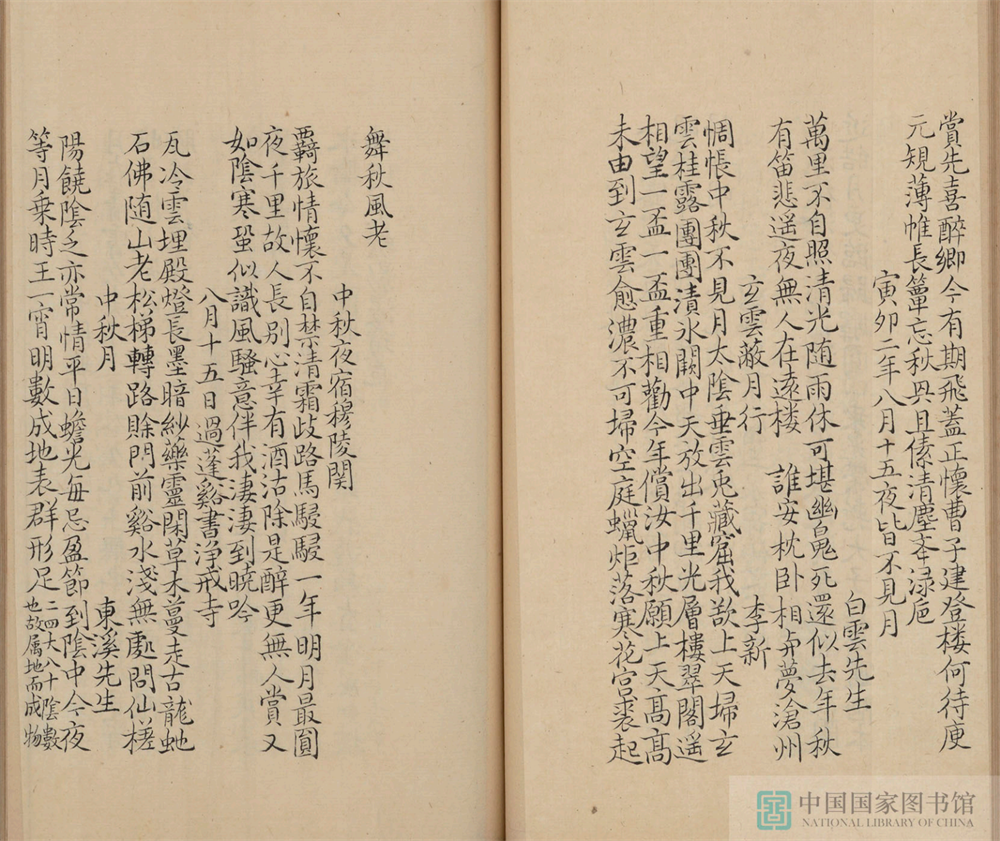 賞先喜醉鄉今有期飛蓋正懷曹子建登楼何待庾
元規薄帷長簟忘秋與且傃清塵奉渌巵
寅夘二年八月十五夜皆不見月
白雲先生
萬里不自照清光随雨休可堪幽鬼死還似去年秋
有笛悲遥夜無人在遠楼 誰安枕卧相与夢滄州
玄雲蔽月行 李新
惆悵中秋不見月太陰垂雲兎藏窟我欲上天掃玄
雲桂露團團漬氷闕中天放出千里光層樓翠閣遥
相望一盃一盃重相勸今年償汝中秋願上天髙髙
未由到玄雲愈濃不可掃空庭蠟炬落寒花宫裘起
舞秋風老
中秋夜宿穆陵関
覊旅情懷不自禁清霜歧路馬駸駸一年明月最圎
夜千里故人長别心辛有酒沽除是醉更無人賞又
如陰寒蛩似識風騷意伴我淒淒到曉吟
八月十五日過蓬谿書浄戒寺
瓦冷雲埋殿燈長墨暗紗藥靈閑草木蔓走古龍虵
石佛随山老松梯轉路賒門前谿水淺無處問仙槎
中秋月 東溪先生
陽饒陰乏亦常情平日蟾光每忌盈節到陰中今夜
等月乗時王一宵明數成地表群形足二四大八十陰數也故属地而成物
中国国家图书馆
NATIONAL LIBRARY OF CHINA